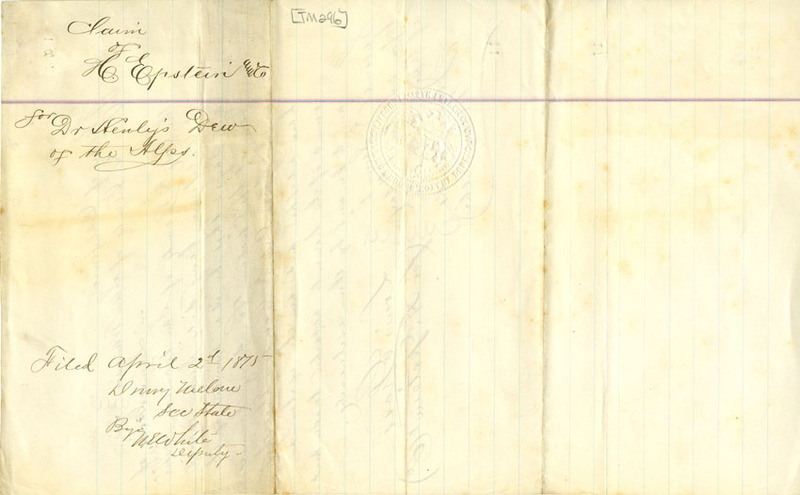 [TM296]
Claim
of
H. Epstein
for
Dr Henly's Dew
of the Alps.
Filed April 2d 1875
Drury Melone
Sec State
By
Deputy